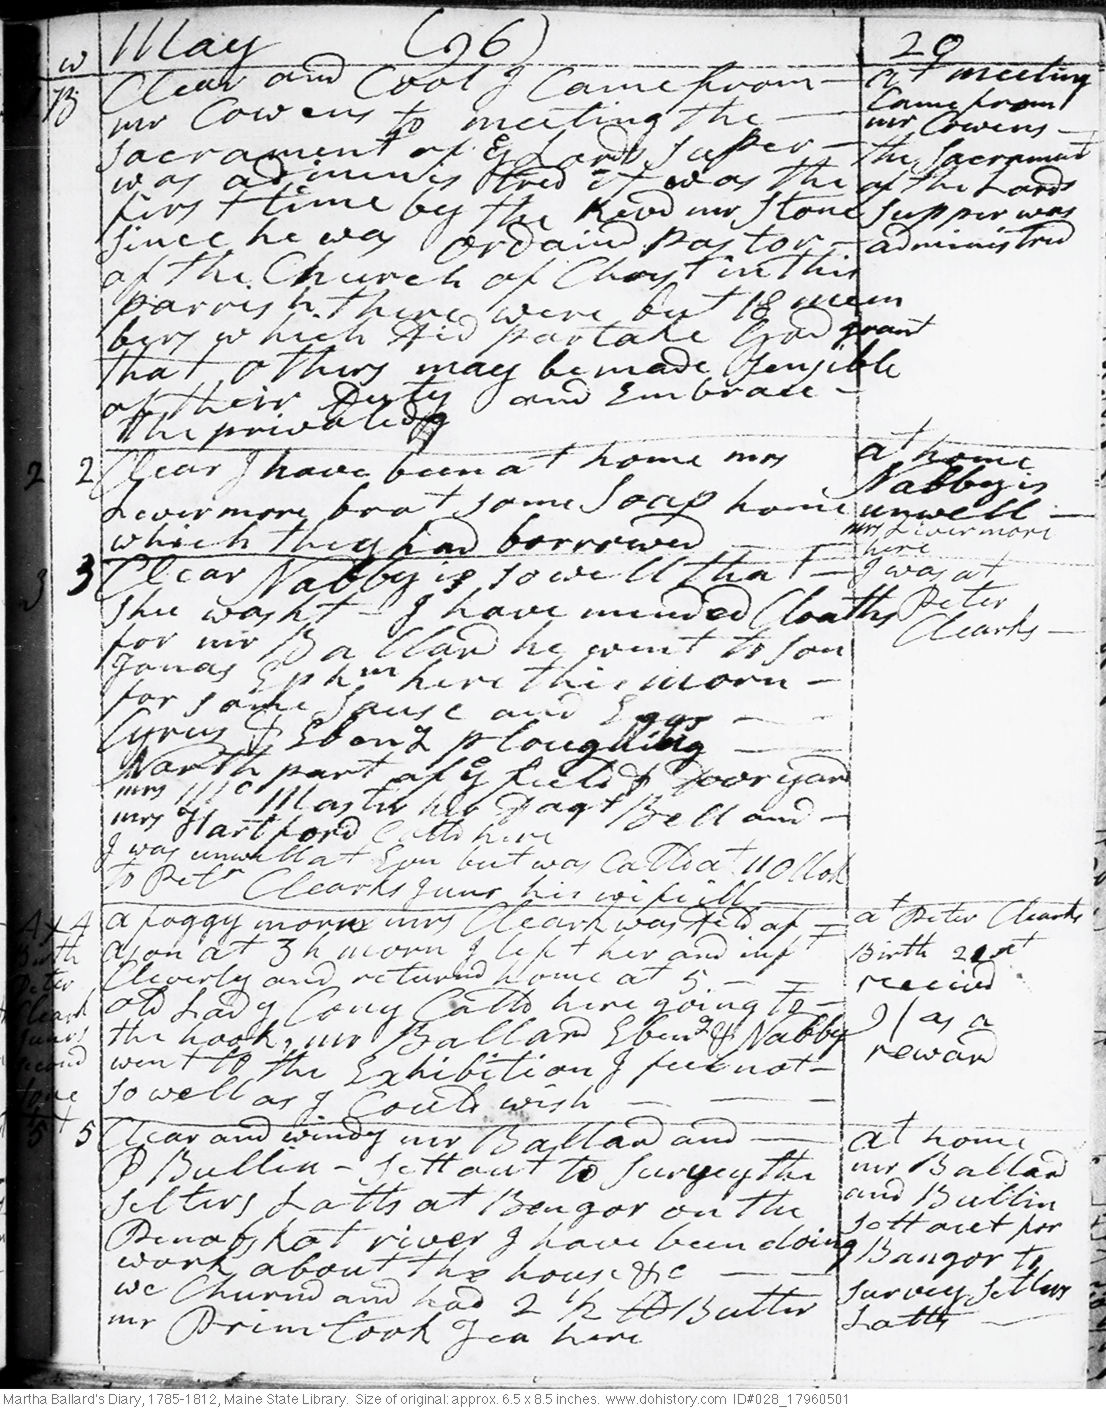 w May (96) 29
1 B Clear and Cool I Came from — at meeting
mr Cowens to meeting the — Came from
Sacrament of ye Lords Supper — mr Cowens —
was adminnis tred it was the the Sacrament
first time by the Revd mr Stone of the Lords
Since he was ordaind pastor — Supper was
of the Church of Chrst in this administred
parrish. there were but 18 mem
bers which did partake God grant
that others may be made Sensible
of their Duty and Embrace —
the priviledg
2 2 Clear I have been at home mrs at home
Livermore brot some Soap home Nabby is
which they had borrowed unwell —
mrs Livermore
here
3 3 Clear Nabby is so well that — I was at
She washt — I have mended Cloaths Peter
for mr Ballard he went to son Clearks —
Jonas Ephm here this morn —
for some Sause and Eggs —
Cyrus & Ebenz ploughing —
North part of ye field & Dooryard
mrs Mc Master her Dagt Bell and —
mrs Hartford Calld here
I was unwell at Evn but was Calld at 11 Clok
to Petr Clearks Junr his wife ill —
4 x 4 a foggy morn mrs Cleark was deld of = at Peter Clearks
Birth a son at 3 h morn I left her and inft Birth 21st
Peter Cleverly and returnd home at 5 — = receivd
Cleark old Lady Cony Calld here going to — 9/ as a
Junrs the hook, mr Ballard Ebenz & Nabby reward
second went to the Exhibition I feel not —
sone so well as I Could wish —
5 5 Clear and windy mr Ballard and — at home
D Bullin — sett out to Survey the mr Ballard
Setlers Latts at Bengor on the and Bullin
Penobskot river I have been doing sett out for
work about the house &c — Bangor to
we Churnd and had 2 1/2 lb Butter survey Setlers
mr Prim took Tea here Latts —
Martha Ballard's Diary, 1785-1812, Maine State Library. Size of original: approx. 6.5 x 8.5 inches. www.dohistory.com ID#028_17960501